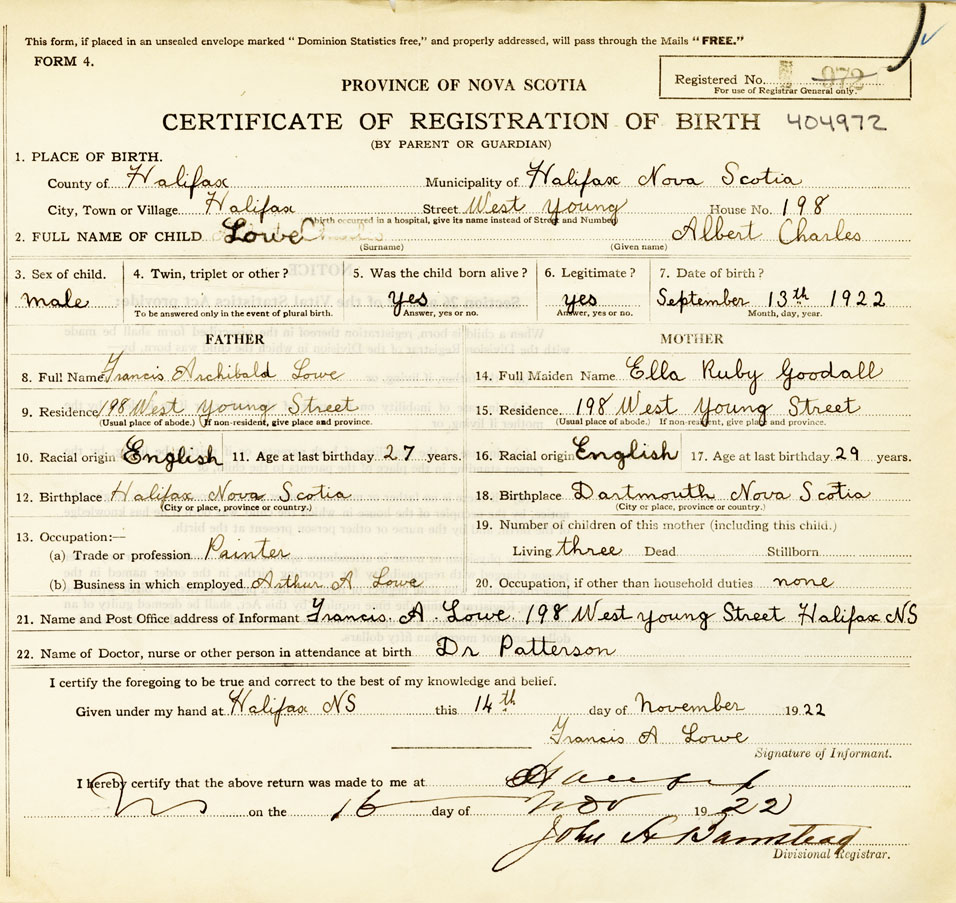 This form, if placed in an unsealed envelope marked " Dominion Statistics free," and properly addressed, will pass through the Mails "FREE."
FORM 4.
Registered No. 972
For use of Registrar General only.
PROVINCE OF NOVA SCOTIA
CERTIFICATE OF REGISTRATION OF BIRTH 404972
(BY PARENT OR GUARDIAN)
1. PLACE OF BIRTH.
County of Halifax Municipality of Halifax Nova Scotia
City, Town or Village Halifax Street West Young House No. 198
(If birth occurred in a hospital, give its name instead of Street and Number)
2. FULL NAME OF CHILD Lowe Albert Charles
(Surname) (Given name)
3. Sex of child. 4. Twin, triplet or other? 5. Was the child born alive? 6. Legitimate? 7. Date of birth?
male yes yes September 13th 1922
To be answered only in the event of plural birth. Answer, yes or no. Answer, yes or no. Month, day, year.
FATHER MOTHER
8. Full Name Francis Archibald Lowe 14. Full Maiden Name Ella Ruby Goodall
9. Residence 198 West Young Street 15. Residence. 198 West Young Street
(Usual place of abode.) (If non-resident, give place and province. (Usual place of abode.) If non-resident, give place and province.
10. Racial origin English 11. Age at last birthday 27 years. 16. Racial origin English 17. Age at last birthday 29 years.
12. Birthplace Halifax Nova Scotia 18. Birthplace Dartmouth Nova Scotia
(City or place, province or country.) (City or place, province or country.)
13. Occupation:— 19. Number of children of this mother (including this child.)
(a) Trade or profession Painter Living three Dead Stillborn
(b) Business in which employed Arthur A Lowe 20. Occupation, if other than household duties none
21. Name and Post Office address of Informant Francis. A. Lowe. 198 West young Street Halifax NS
22. Name of Doctor, nurse or other person in attendance at birth Dr Patterson
I certify the foregoing to be true and correct to the best of my knowledge and belief.
Given under my hand at Halifax NS this 14th day of November 1922
Francis A Lowe
Signature of Informant.
I hereby certify that the above return was made to me at
on the 16 day of Nov 1922
John A Barnstead
Divisional Registrar.